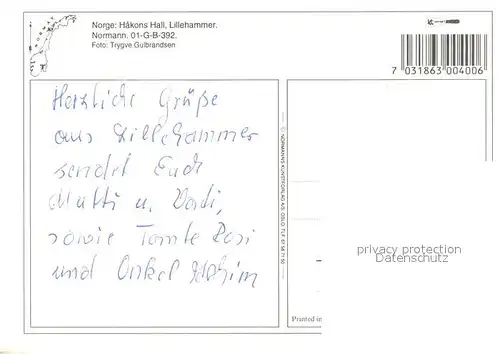 NORWAY
Norge: Håkons Hall, Lillehammer.
Normann. 01-G-B-392.
Foto: Trygve Gulbrandsen
7 031863 004006
Herzliche Grüße
aus Lillehammer
sendet Euch
Mutti u. Vati,
sowie Tante Rosi
und Onkel
© NORMANNS KUNSTFORLAG A/S OSLO TLF.
privacy protection
Datenschutz
Printed in